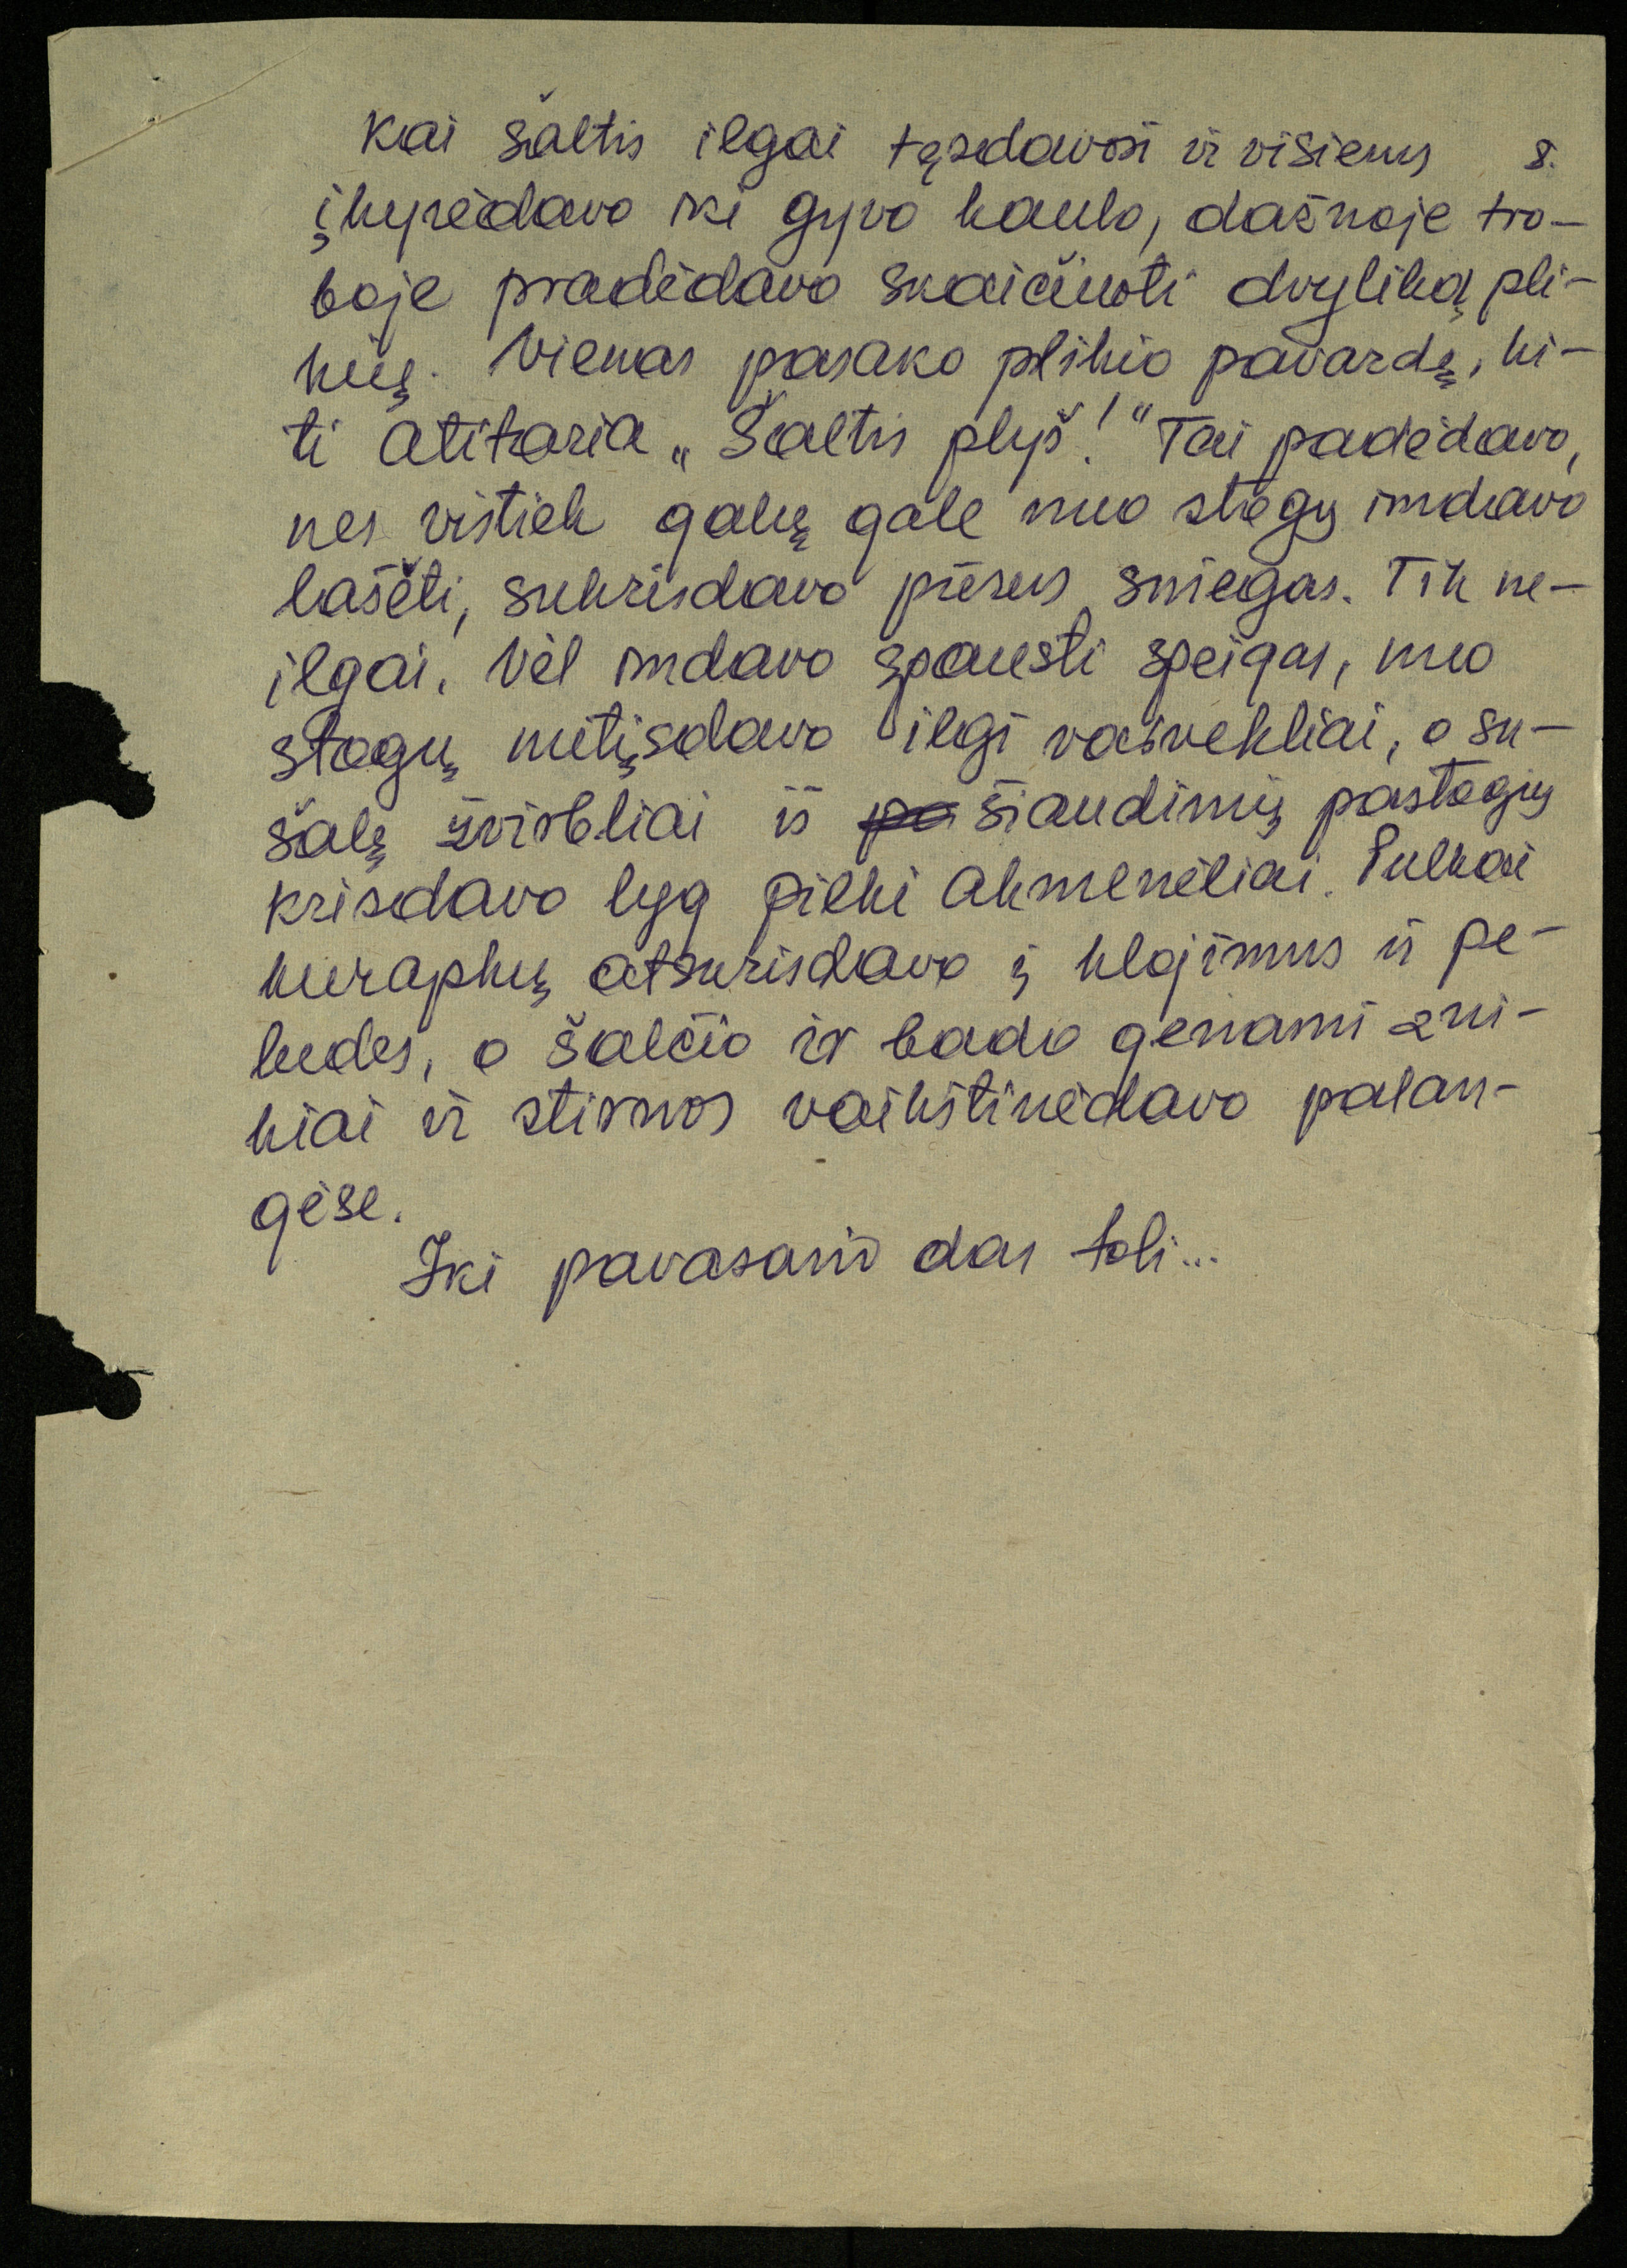 Kai šaltis ilgai tęsdavosi ir visiems 8.
įkyrėdavo iki gyvo kaulo, dažnoje tro-
boje pradėdavo skaičiuoti dvyliką pli-
kių. Vienas pasako plikio pavardę, ki-
ti atitaria „Šaltis plyš!“ Tai padėdavo,
nes vistiek galų gale nuo stogų imdavo
lašėti, sukrisdavo piesus sniegas. Tik ne-
ilgai. Vėl imdavo spausti speigas, nuo
stogų nutįsdavo ilgi varvekliai, o su-
šalę žvirbliai iš pa šiaudinių pastogių
krisdavo lyg pilki akmenėliai. Pulkai
kurapkų atskrisdavo į klojimus ir pe-
ludes, o šalčio ir bado genami zui-
kiai ir stirnos vaikštinėdavo palan-
gėse.
Iki pavasario dar toli...